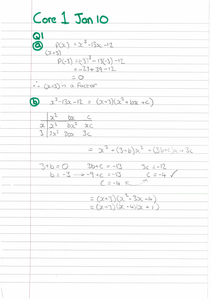 Core 1 Jan 10
Q1
a) P(x) = x³-13x-12
(x+3)
P(-3) = (-3)³-13(-3)-12
= -27+39-12
= 0
∴ (x+3) is a factor
b) x³-13x-12 = (x+3)(x²+bx+c)
x² bx c
x x³ bx² xc
3 3x² 3bx 3c
= x³+(3+b)x²+(3b+c)x+3c
3+b=0 3b+c=-13 3c=-12
b=-3 -9+c=-13 c=-4 ✓
c=-4
= (x+3)(x²-3x-4)
= (x+3)(x-4)(x+1)